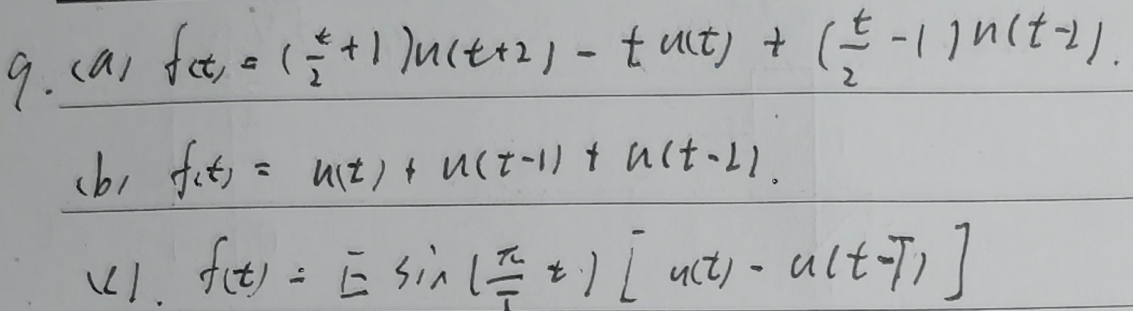 9. (a) f(t) = (t/2 + 1)u(t+2) - t u(t) + (t/2 - 1)u(t-2).
(b) f(t) = u(t) + u(t-1) + u(t-2).
(c). f(t) = E sin(π/T t)[u(t) - u(t-T)]